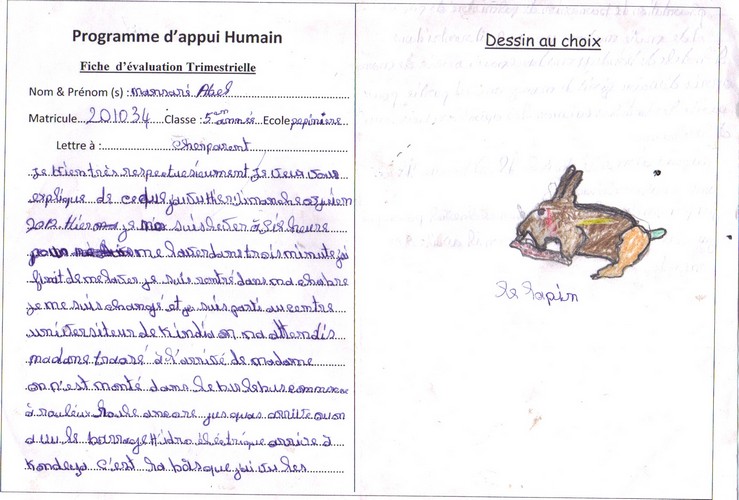 Programme d'appui Humain
Fiche d'évaluation Trimestrielle
Nom & Prénom (s) : Mansaré Abel
Matricule 201034 Classe : 5em année Ecole pepiniere
Lettre à : Cherparent
Je vien très respectueusement Je veux vous
explique de ce que
2012 Hier je me suis lever à six heure
me laver dans trois minute j'ai
finit de me laver je suis rentré dans ma chabre
je me suis changé et je suis parti au centre
universiteur de Kindia on na attendis
madame traoré à l'arrivé de madame
on n'est monté dans le bus le bus commence
à rouleux Roule ancore jus quas arrivée on on
a vu le barrage Hidro éléctrique arrivé à
Kondeya C'est la bàs que j'ai vu les
Dessin au choix
Le lapin